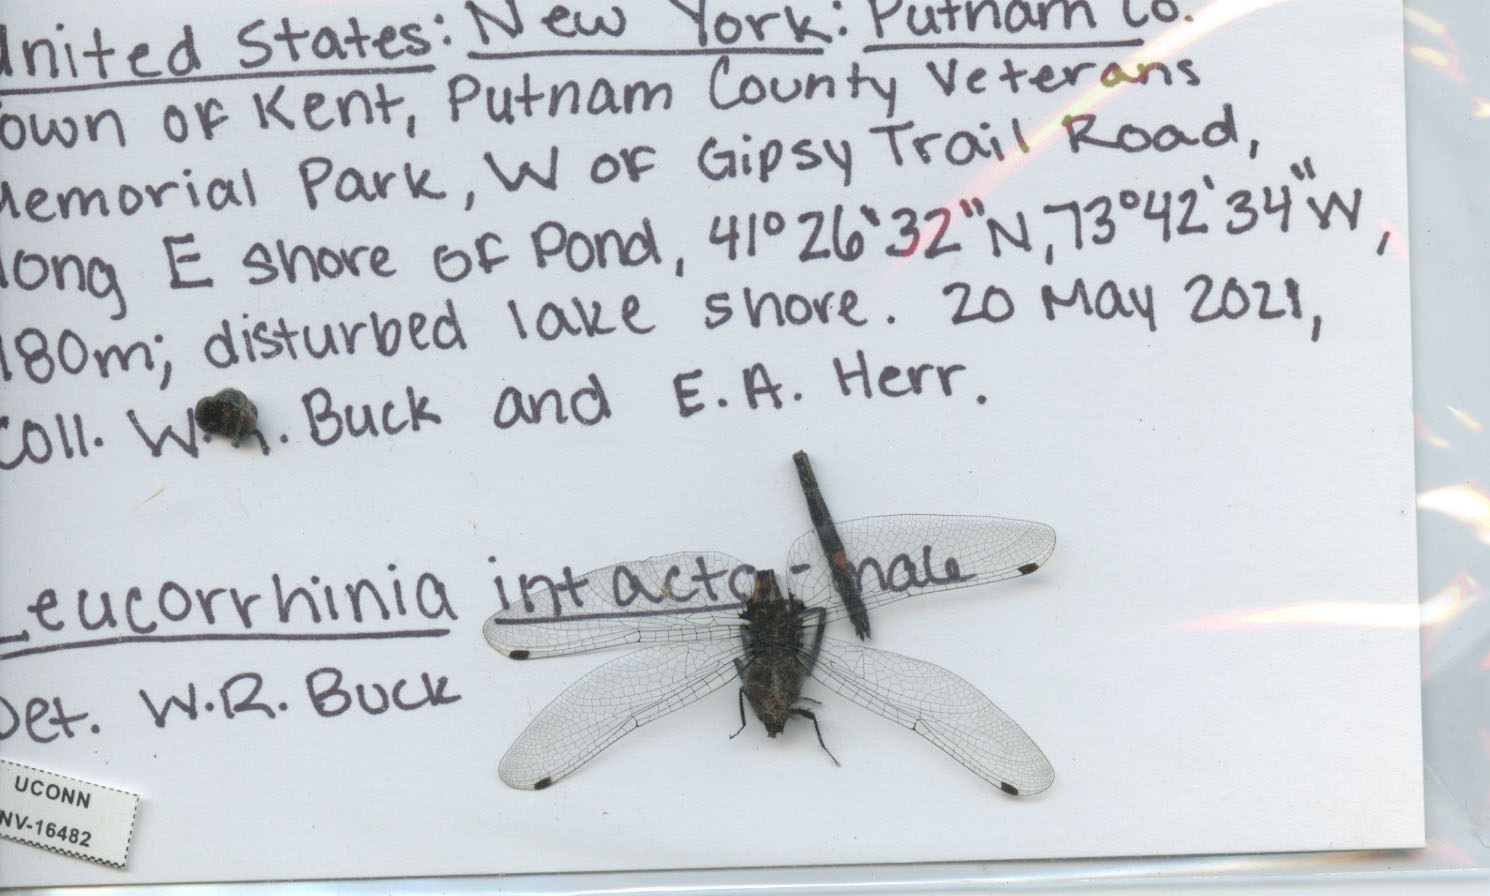 United States: New York: Putnam Co.
own of Kent, Putnam County Veterans
Memorial Park, W of Gipsy Trail Road,
long E shore of Pond, 41°26'32"N, 73°42'34"W,
180m; disturbed lake shore. 20 May 2021,
Coll. W.R. Buck and E.A. Herr.
Leucorrhinia intacta - male
Det. W.R. Buck
UCONN
NV-16482